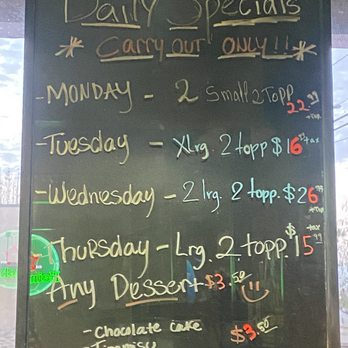 Daily Specials
* Carry out ONLY!! *
-MONDAY - 2 Small 2 Topp 22.99 +tax
-Tuesday - Xlrg. 2 topp $16.99 +tax
-Wednesday - 2 lrg. 2 topp. $26.99 +tax
-Thursday - Lrg. 2 topp. $15.99 +tax
Any Dessert $3.50
- Chocolate cake $3.50
- Tiramisu